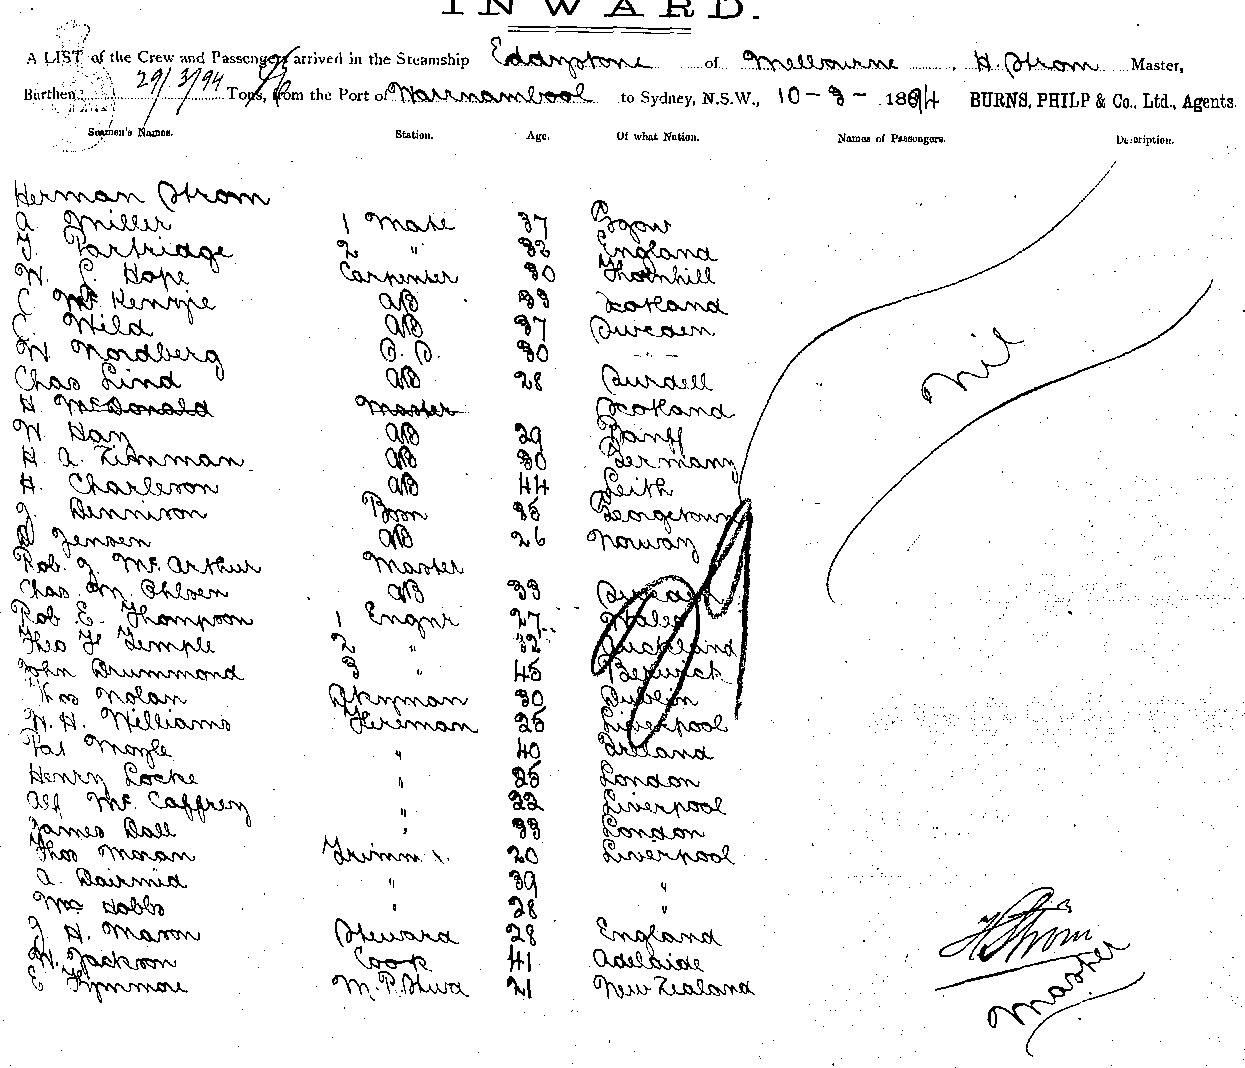 INWARD.
A LIST of the Crew and Passengers arrived in the Steamship Eddystone of Melbourne, H. Strom Master,
Burthen 29/3/94 Tons, from the Port of Warrnambool to Sydney, N.S.W., 10-3-1894 BURNS, PHILP & Co., Ltd., Agents.
Seamen's Names. Station. Age. Of what Nation. Names of Passengers. Description.
Herman Strom
A. Miller 1 Mate 37
J. Partridge 2 " 32 England
W. S. Hope Carpenter 30 Thornhill
C McKenzie AB 33 Scotland
C. Wild AB 37 Sweden
W. Nordberg 30 - " -
Chas Lind AB 28
H. McDonald Master Scotland
W. Hay AB 29 Banff
H. A. AB 30 Germany
H. Charleson AB 44 Leith
J. Dennison Bosn 35 Georgetown
Jensen AB 26 Norway
Rob. J. McArthur Master
Chas M. Ohlsen AB 33 Sweden
Rob E. Thompson 1 Engnr 27 Wales
Theo F Temple 2 " 32 Auckland
John Drummond 3 " 45 Berwick
Thos Nolan Dkyman 30 Dublin
W. H. Williams Fireman 25 Liverpool
Pat Moyle " 40 Ireland
Henry Locke " 25 London
Alf McCaffrey " 22 Liverpool
James Dall " 33 London
Thos Moran Trimmr. 20 Liverpool
A. Dairmid " 39 "
Wm Hobbs " 28 "
J. H. Mason Steward 28 England
W. Jackson Cook 41 Adelaide
E M.P. Stwd 21 New Zealand
Nil
H Strom
Master